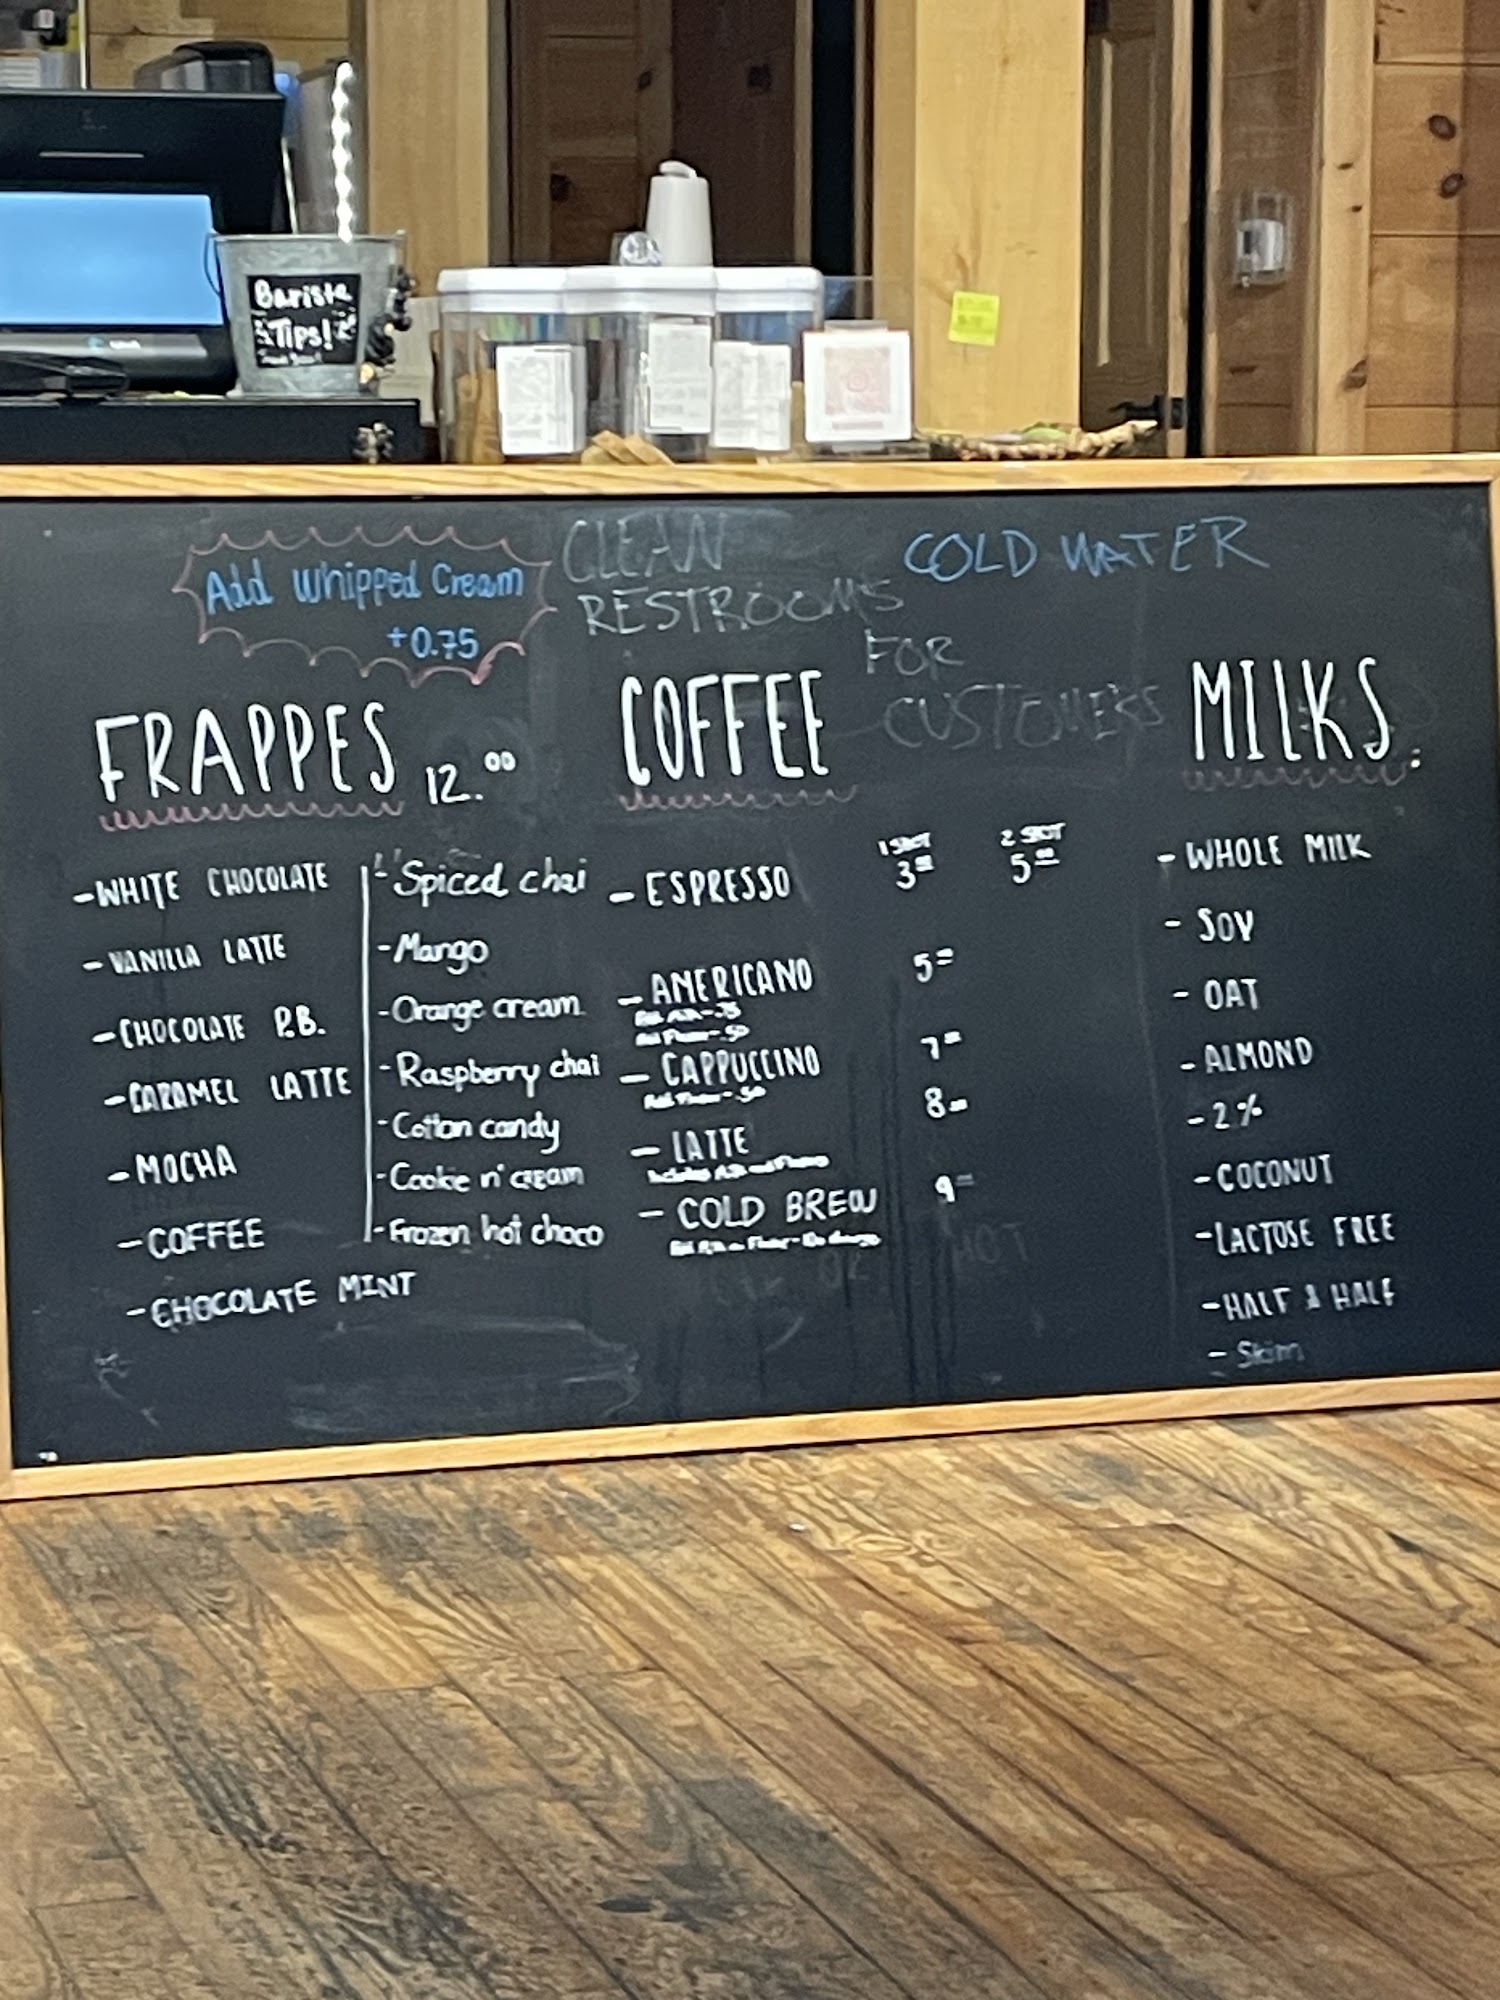 Barista
Tips!
Add Whipped Cream
+0.75
CLEAN
RESTROOMS
FOR
CUSTOMERS
COLD WATER
FRAPPES 12.00
- WHITE CHOCOLATE
- VANILLA LATTE
- CHOCOLATE P.B.
- CARAMEL LATTE
- MOCHA
- COFFEE
- CHOCOLATE MINT
- Spiced chai
- Mango
- Orange cream
- Raspberry chai
- Cotton candy
- Cookie n' cream
- Frozen hot choco
COFFEE
1 SHOT 2 SHOT
- ESPRESSO 3.00 5.00
- AMERICANO 5=
Add Milk - .75
Add Flavor - .50
- CAPPUCCINO 7=
Add Flavor - .50
- LATTE 8=
Includes Milk and Flavor
- COLD BREW 9=
OR HOT
MILKS:
- WHOLE MILK
- SOY
- OAT
- ALMOND
- 2%
- COCONUT
- LACTOSE FREE
- HALF & HALF
- Skim